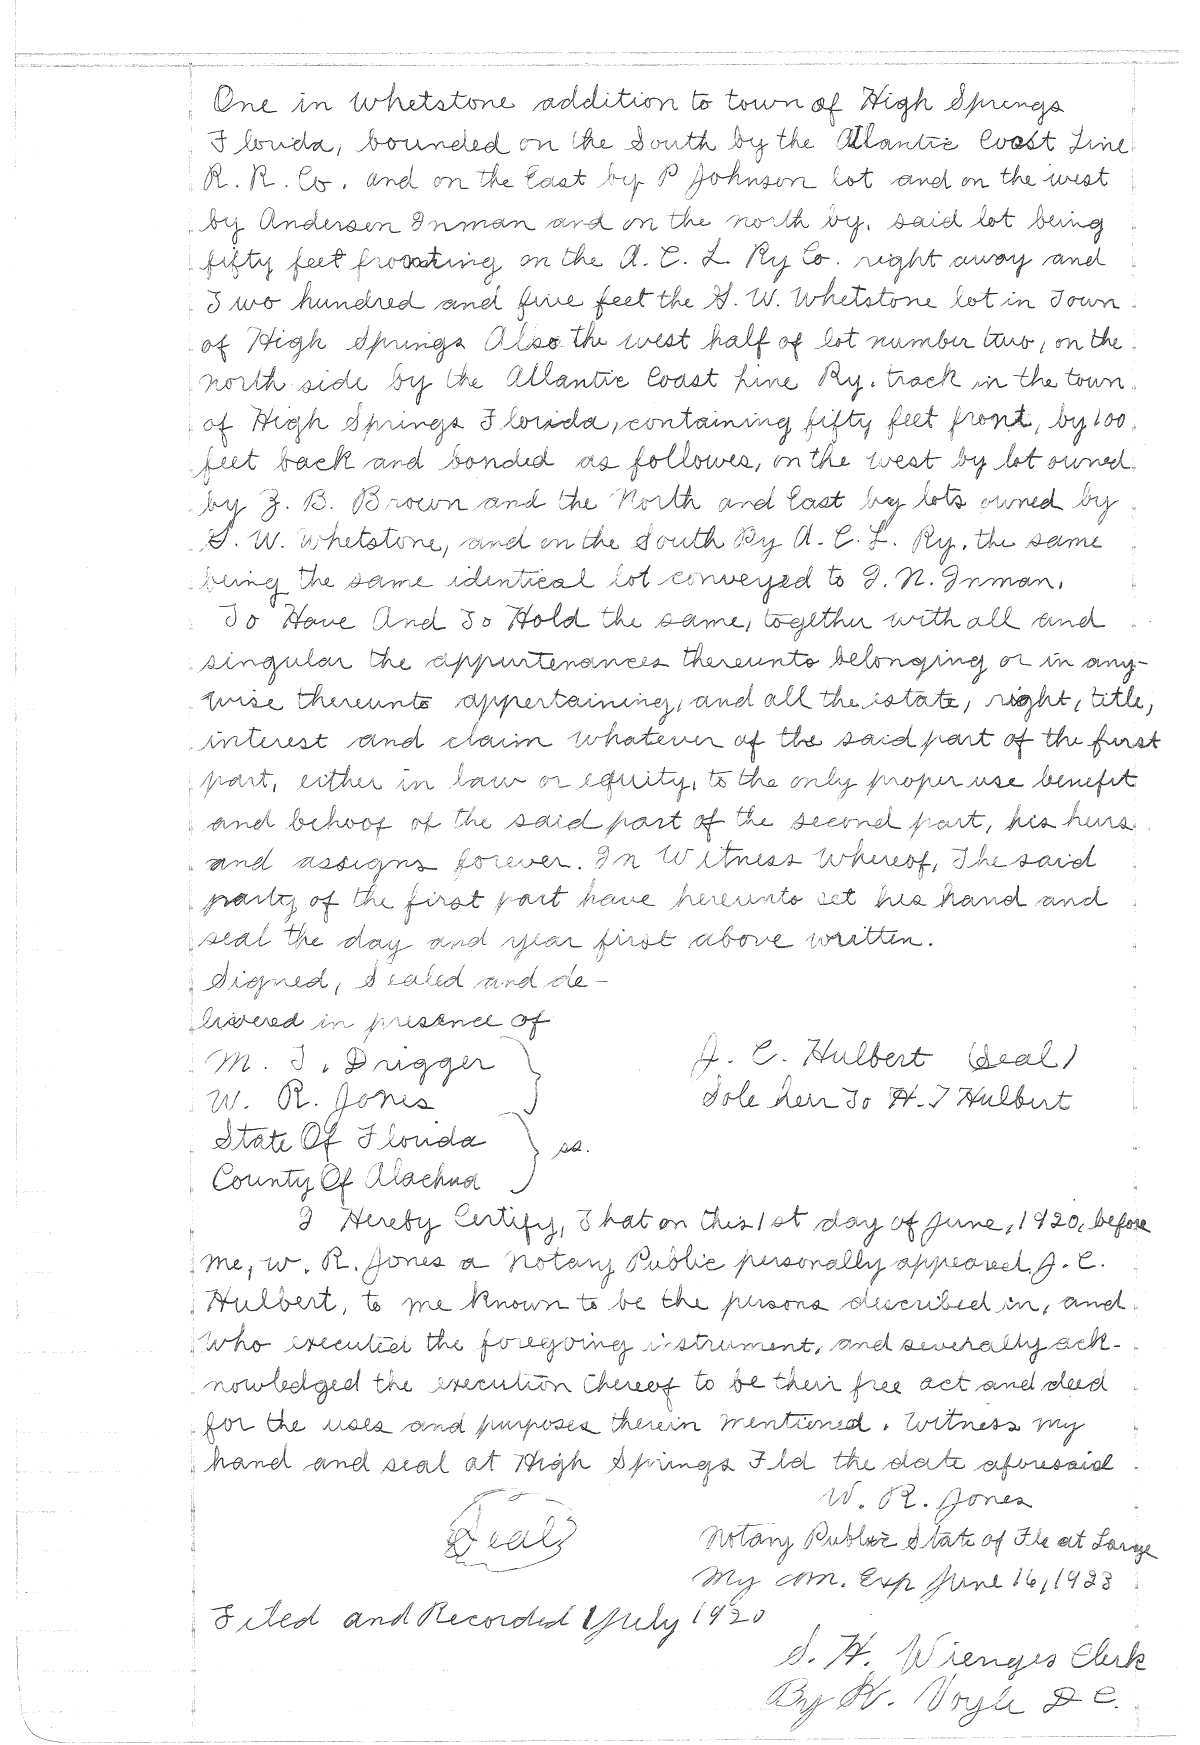 One in Whetstone addition to town of High Springs
Florida, bounded on the South by the Atlantic Coast Line
R. R. Co. and on the East by P Johnson lot and on the west
by Andersen Inman and on the north by, said lot being
fifty feet fronting on the A. C. L. Ry Co. right away and
Two hundred and five feet the G. W. Whetstone lot in Town
of High Springs Also the west half of lot number two, on the
north side by the Atlantic Coast Line Ry. track in the town
of High Springs Florida, containing fifty feet front, by 100
feet back and bonded as followes, on the west by lot owned
by Z. B. Brown and the North and East by lots owned by
G. W. Whetstone, and on the South By A. C. L. Ry, the same
being the same identical lot conveyed to I. N. Inman.
To Have And To Hold the same, together with all and
singular the appurtenances thereunto belonging or in any-
wise thereunto appertaining, and all the estate, right, title,
interest and claim whatever of the said part of the first
part, either in law or equity, to the only proper use benefit
and behoof of the said part of the second part, his heirs
and assigns forever. In Witness Whereof, The said
party of the first part have hereunto set his hand and
seal the day and year first above written.
Signed, Sealed and de-
livered in presence of
M. T. Drigger
J. C. Hulbert (Seal)
W. R. Jones
Sole heir To H. T Hulbert
State Of Florida
ss.
County Of Alachua
I Hereby Certify, That on this 1st day of June, 1920, before
me, W. R. Jones a Notary Public personally appeared J. C.
Hulbert, to me known to be the persons described in, and
who executed the foregoing instrument, and severally ack-
nowledged the execution thereof to be their free act and deed
for the uses and purposes therein mentioned. Witness my
hand and seal at High Springs Fld the date aforesaid
W. R. Jones
Seal
Notary Public State of Fla at Large
My com. Exp June 16, 1923
Filed and Recorded 1 July 1920
S. H. Wienges Clerk
By K. Voyle D C.